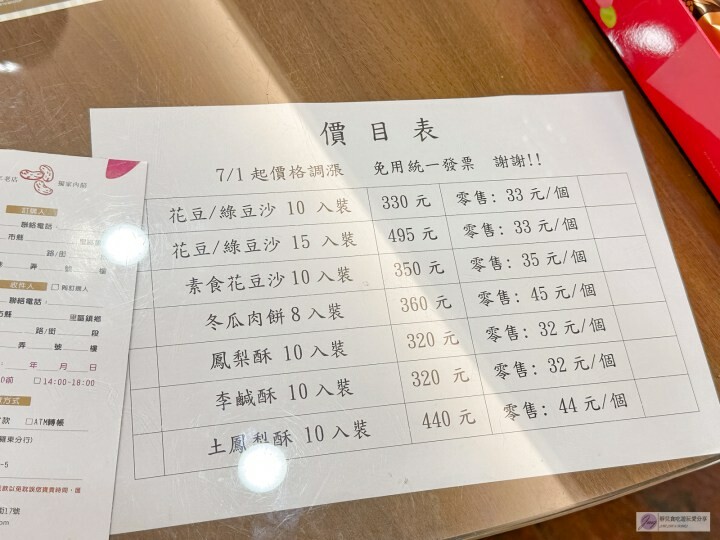 價目表
7/1 起價格調漲 免用統一發票 謝謝!!
花豆/綠豆沙 10 入裝 330 元 零售: 33 元/個
花豆/綠豆沙 15 入裝 495 元 零售: 33 元/個
素食花豆沙 10 入裝 350 元 零售: 35 元/個
冬瓜肉餅 8 入裝 360 元 零售: 45 元/個
鳳梨酥 10 入裝 320 元 零售: 32 元/個
李鹹酥 10 入裝 320 元 零售: 32 元/個
土鳳梨酥 10 入裝 440 元 零售: 44 元/個
老店
獨家內餡
訂購人
聯絡電話
市縣
路/街
弄 號 樓
收件人 □ 同訂購人
聯絡電話
里區鎮鄉
路/街 段
弄 號 樓
年 月 日
□14:00-18:00
方式
款 □ATM轉帳
羅東分行)
-5
街17號